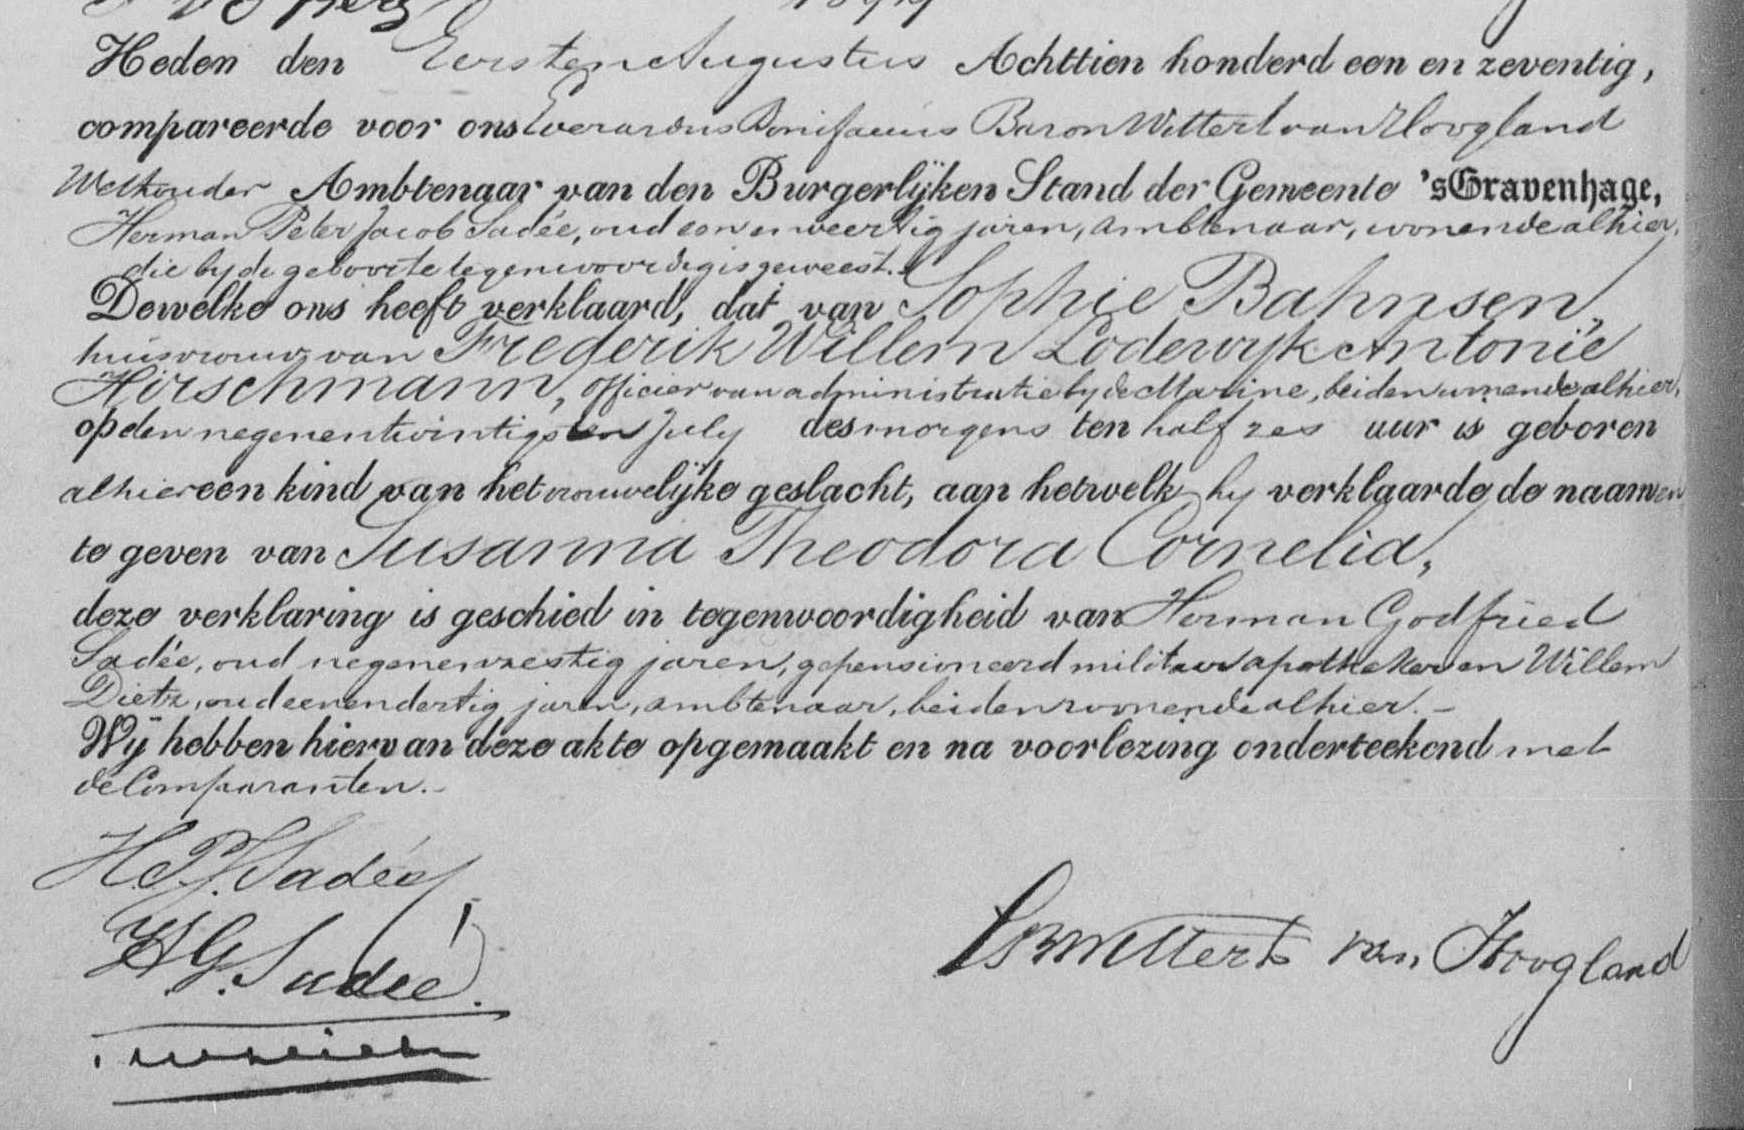 Heden den Eersten Augustus Achttien honderd een en zeventig,
compareerde voor ons Everardus Bonifacius Baron Wittert van Hoogland
Wethouder Ambtenaar van den Burgerlijken Stand der Gemeente 'sGravenhage,
Herman Peter Jacob Sadée, oud een en veertig jaren, ambtenaar, wonende alhier,
die by de geboorte tegenwoordig is geweest.
Dewelke ons heeft verklaard, dat van Sophie Bahnsen,
huisvrouw van Frederik Willem Lodewyk Antonie
Hirschmann, officier van administratie by de Marine, beiden wonende alhier,
op den negenentwintigsten July des morgens ten half zes uur is geboren
alhier een kind van het vrouwelijke geslacht, aan hetwelk hy verklaarde de naamen
te geven van Susanna Theodora Cornelia,
deze verklaring is geschied in tegenwoordigheid van Herman Godfried
Sadée, oud negenenzestig jaren, gepensioneerd militair apotheker en Willem
Dietz, oud eenendertig jaren, ambtenaar, beiden wonende alhier.-
Wij hebben hiervan deze akte opgemaakt en na voorlezing onderteekend met
de Comparanten.-
H.P.J. Sadée
H.G. Sadée.
EBWittert van Hoogland